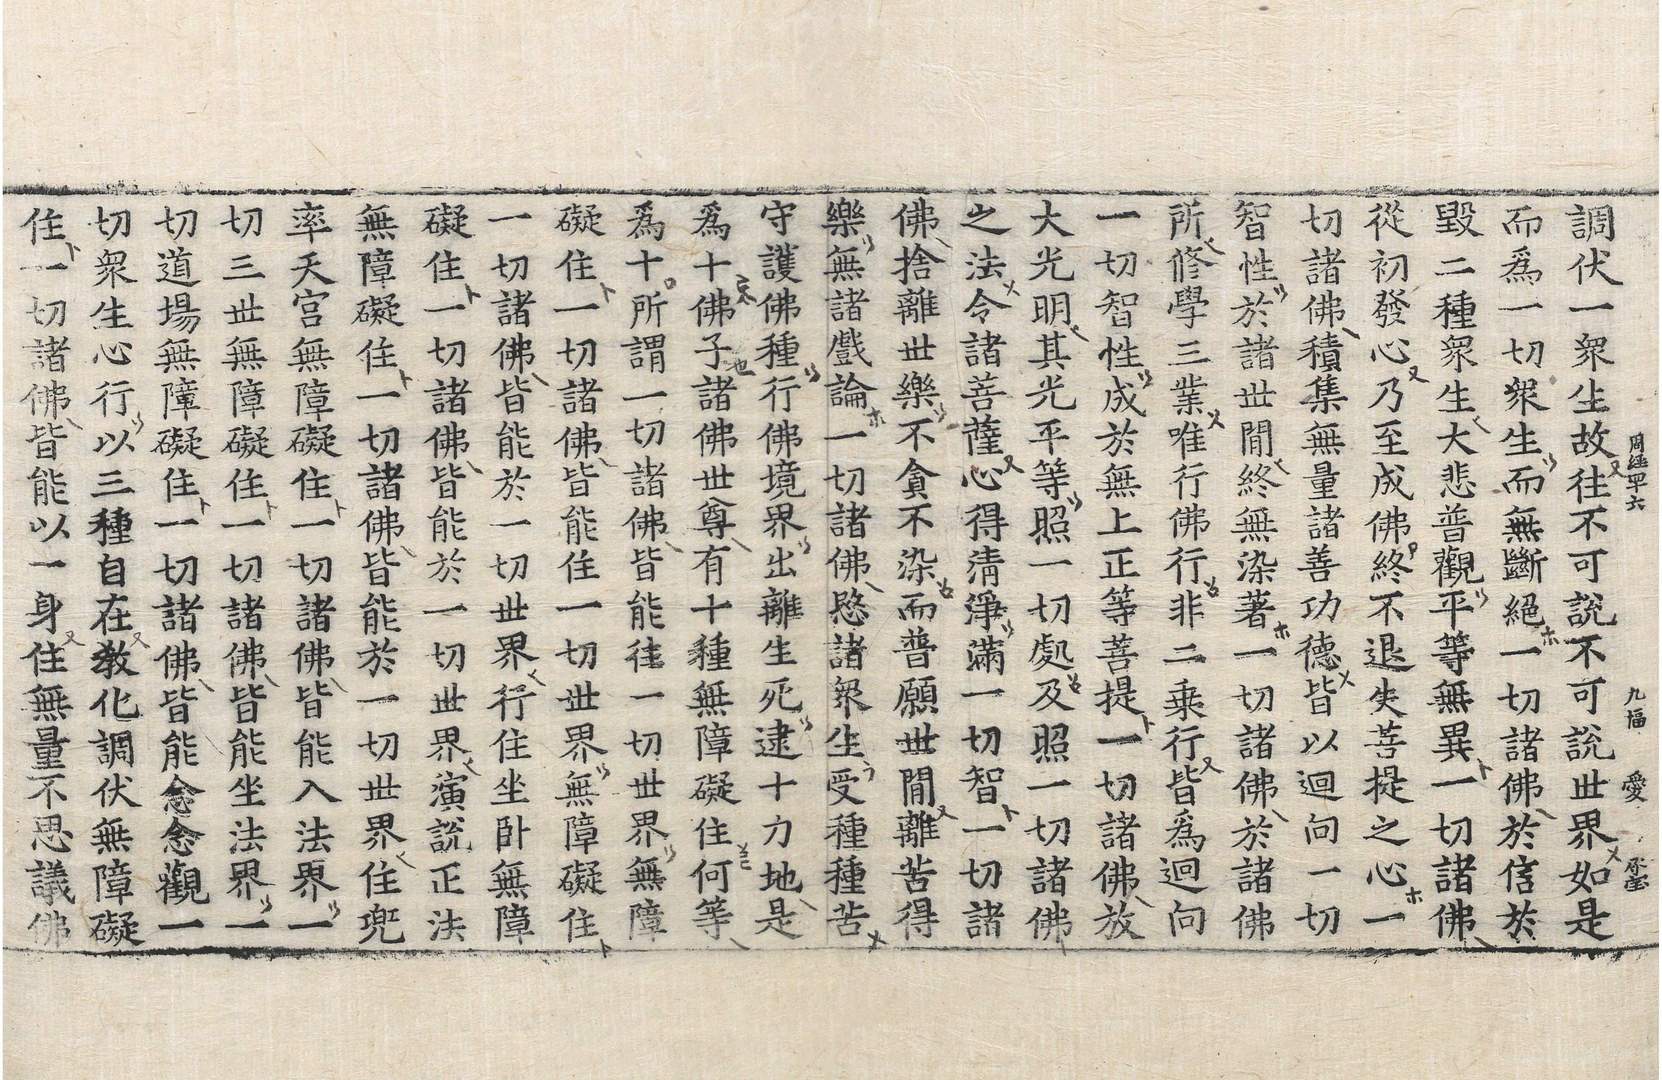 周經四十六 九幅 愛
調伏一衆生故往不可說不可說世界如是
而爲一切衆生而無斷絕一切諸佛於信於
毀二種衆生大悲普觀平等無異一切諸佛
從初發心乃至成佛終不退失菩提之心一
切諸佛積集無量諸善功德皆以迴向一切
智性於諸世間終無染著一切諸佛於諸佛
所修學三業唯行佛行非二乘行皆爲迴向
一切智性成於無上正等菩提一切諸佛放
大光明其光平等照一切處及照一切諸佛
之法令諸菩薩心得清淨滿一切智一切諸
佛捨離世樂不貪不染而普願世間離苦得
樂無諸戲論一切諸佛愍諸衆生受種種苦
守護佛種行佛境界出離生死逮十力地是
爲十佛子諸佛世尊有十種無障礙住何等
爲十所謂一切諸佛皆能往一切世界無障
礙住一切諸佛皆能住一切世界無障礙住
一切諸佛皆能於一切世界行住坐臥無障
礙住一切諸佛皆能於一切世界演說正法
無障礙住一切諸佛皆能於一切世界住兜
率天宮無障礙住一切諸佛皆能入法界一
切三世無障礙住一切諸佛皆能坐法界一
切道場無障礙住一切諸佛皆能念念觀一
切衆生心行以三種自在敎化調伏無障礙
住一切諸佛皆能以一身住無量不思議佛